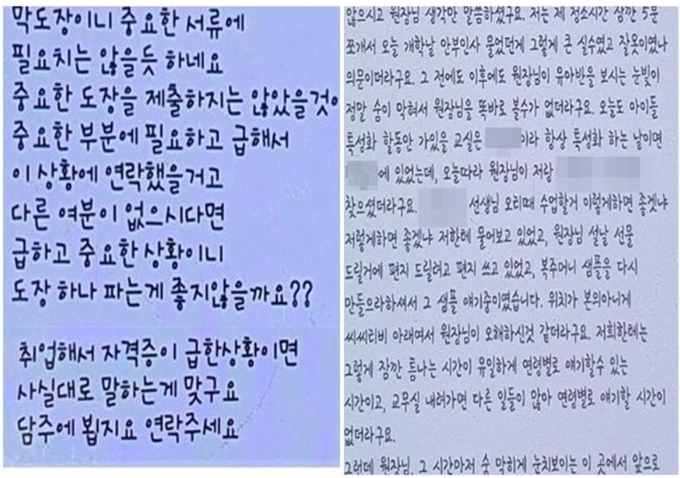 막도장이니 중요한 서류에
필요치는 않을듯 하네요
중요한 도장을 제출하지는 않았을것이
중요한 부분에 필요하고 급해서
이 상황에 연락했을거고
다른 여분이 없으시다면
급하고 중요한상황이니
도장 하나 파는게 좋지않을까요??
취업해서 자격증이 급한상황이면
사실대로 말하는게 맞구요
담주에 뵙지요 연락주세요
않으시고 원장님 생각만 말씀하셨구요. 저는 제 청소시간 잠깐 5분
쪼개서 오늘 개학날 안부인사 물었던게 그렇게 큰 실수였고 잘못이였나
의문이더라구요. 그 전에도 이후에도 원장님이 유아반을 보시는 눈빛이
정말 숨이 막혀서 원장님을 똑바로 볼수가 없더라구요. 오늘도 아이들
특성화 활동안 가있을 교실은 이라 항상 특성화 하는 날이면
에 있었는데, 오늘따라 원장님이 저랑
찾으셨더라구요. 선생님 오리때 수업할거 이렇게하면 좋겠냐
저렇게하면 좋겠냐 저한테 물어보고 있었고, 원장님 설날 선물
드릴거에 편지 드릴려고 편지 쓰고 있었고, 복주머니 샘플을 다시
만들으라하셔서 그 샘플 얘기중이였습니다. 위치가 본의아니게
씨씨티비 아래여서 원장님이 오해하신것 같더라구요. 저희한테는
그렇게 잠깐 틈나는 시간이 유일하게 연령별로 얘기할수 있는
시간이고, 교무실 내려가면 다른 일들이 많아 연령별로 얘기할 시간이
없더라구요.
그런데 원장님, 그 시간마저 숨 막히게 눈치보이는 이 곳에서 앞으로